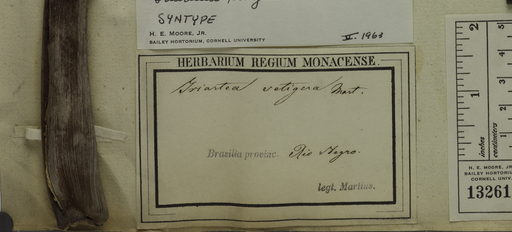 SYNTYPE
H. E. MOORE, JR. V. 1963
BAILEY HORTORIUM, CORNELL UNIVERSITY
HERBARIUM REGIUM MONACENSE.
Iriartea setigera Mart.
Brasilia provinc. Rio Negro.
legt. Martius.
1
2
inches
centimeters
5
H. E. MOORE, JR
BAILEY HORTORIUM
CORNELL UNIV.
13261